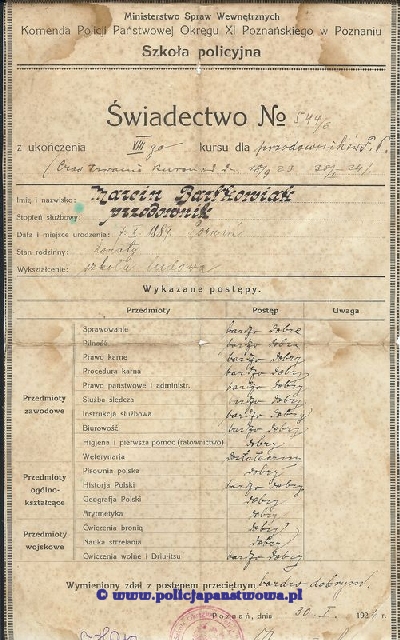 Ministerstwo Spraw Wewnętrznych
Komenda Policji Państwowej Okręgu XI Poznańskiego w Poznaniu
Szkoła policyjna
Świadectwo № 544/8
z ukończenia VIII go kursu dla przodowników P. P.
(Czas trwania kursu od dn.
Imię i nazwisko: Marcin Bartkowiak
Stopień służbowy: przodownik
Data i miejsce urodzenia:
Stan rodzinny: żonaty
Wykształcenie: szkoła ludowa
Wykazane postępy.
Przedmioty Postęp Uwaga
Przedmioty zawodowe
Sprawowanie bardzo dobre
Pilność bardzo dobra
Prawo karne bardzo dobry
Procedura karna bardzo dobry
Prawo państwowe i administr. bardzo dobry
Służba śledcza bardzo dobry
Instrukcja służbowa bardzo dobry
Biurowość bardzo dobry
Higiena i pierwsza pomoc (ratownictwo) dobry
Weterynaria
Przedmioty ogólno-kształcące
Pisownia polska dobry
Historja Polski bardzo dobry
Geografja Polski dobry
Arytmetyka dobry
Przedmioty wojskowe
Ćwiczenia bronią dobry
Nauka strzelania dobry
Ćwiczenia wolne i Dziu-jitsu bardzo dobry
Wymieniony zdał z postępem przeciętnym bardzo dobrym.
© www.policjapanstwowa.pl
Poznań, dnia 30. I. 1924 r.